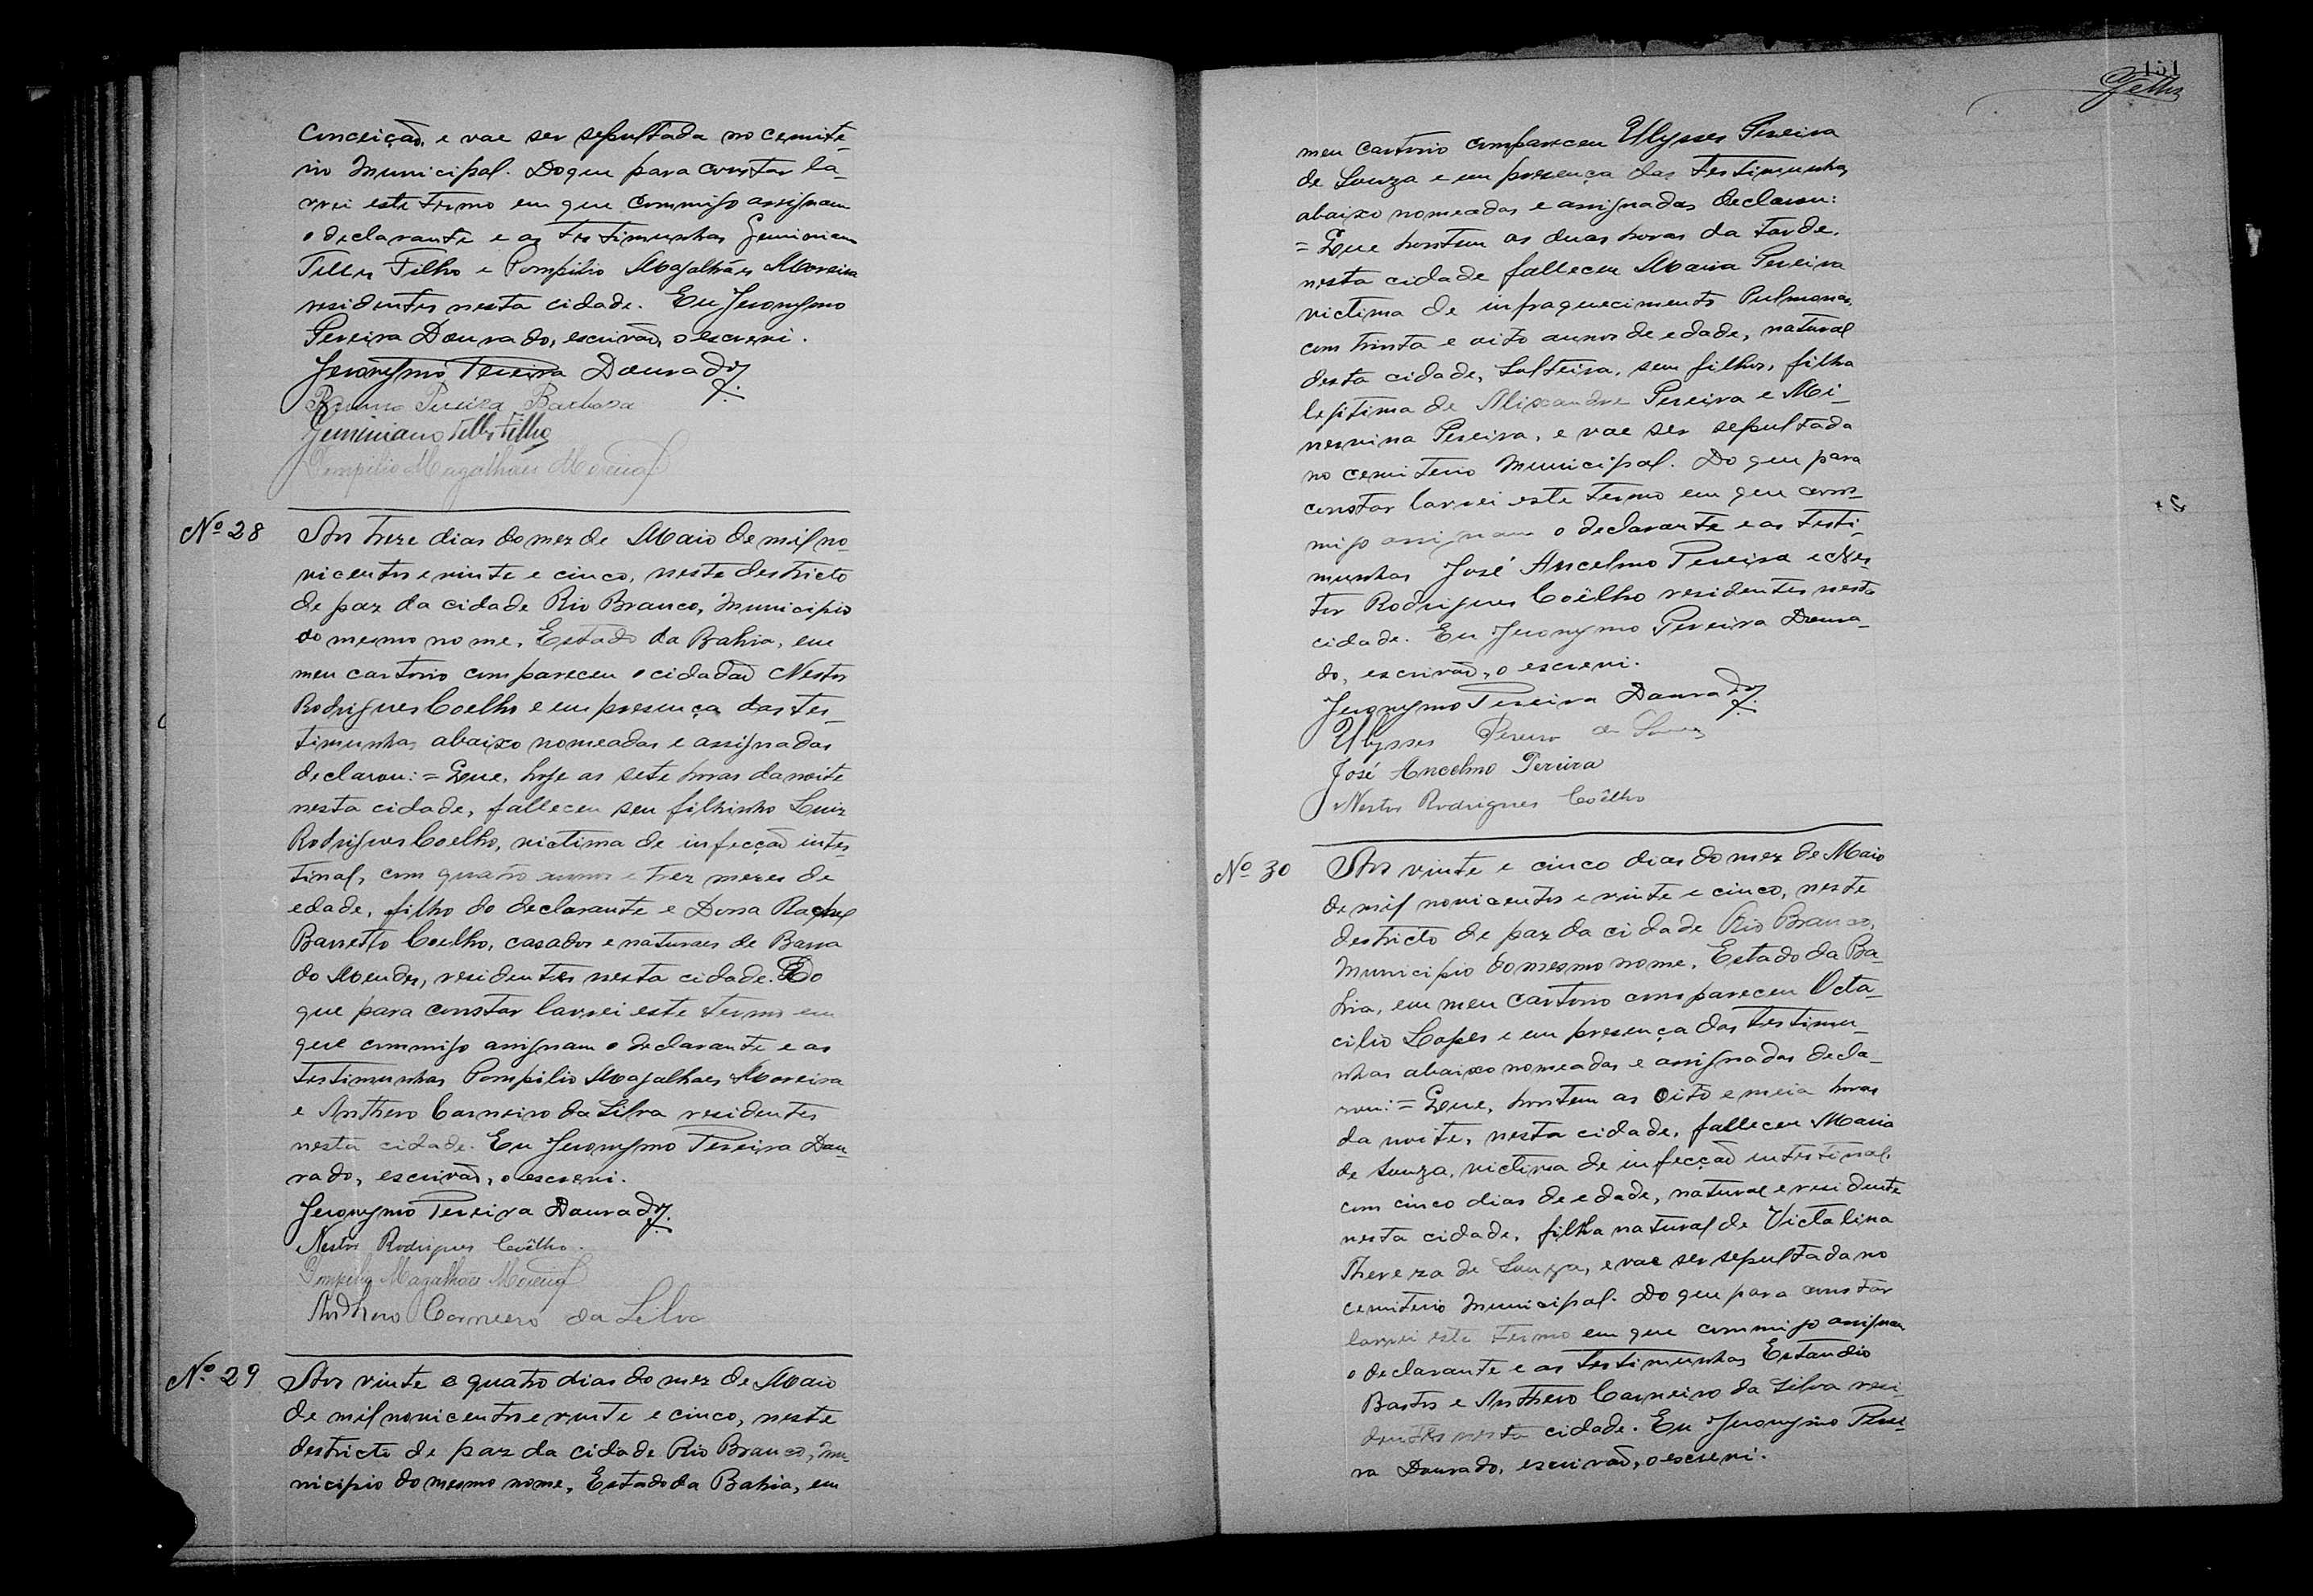 Conceição, e vae ser sepultada no cemite-
rio Municipal. Do que para constar la-
vrei este termo em que commigo assignam
o declarante e as testimunhas Geminiano
Telles Filho e Pompilio Magalhães Moreira
residentes nesta cidade. Eu Jeronymo
Pereira Dourado, escrivão, o escrevi.
Jeronymo Pereira Dourado
Pereira Barbosa
Geminiano Telles Filho
Pompilio Magalhães Moreira
Nº 28
Aos treze dias do mez de Maio de mil no-
vicentos e vinte e cinco, neste destricto
de paz da cidade Rio Branco, Municipio
do mesmo nome, Estado da Bahia, em
meu cartorio compareceu o cidadão Nestor
Rodrigues Coelho e em presença das tes-
timunhas abaixo nomeadas e assignadas
declarou: = Que, hoje as sete horas da noite
nesta cidade, falleceu seu filhinho Luiz
Rodrigues Coelho, victima de infecção intes-
tinal, com quatro annos e trez mezes de
edade, filho do declarante e Dona Rachel
Barretto Coelho, casados e naturaes de Barra
do Mendes, residentes nesta cidade. Do
que para constar lavrei este termo em
que commigo assignam o declarante e as
testimunhas Pompilio Magalhaes Moreira
e Anthero Carneiro da Silva residentes
nesta cidade. Eu Jeronymo Pereira Dou-
rado, escrivão, o escrevi.
Jeronymo Pereira Dourado
Nestor Rodrigues Coêlho.
Pompilio Magalhães Moreira
Anthero Carneiro da Silva
Nº 29
Aos vinte e quatro dias do mez de Maio
de mil novicentos e vinte e cinco, neste
destricto de paz da cidade Rio Branco, mu-
nicipio do mesmo nome, Estado da Bahia, em
151
Telles
meu cartorio compareceu Ulysses Pereira
de Souza e em presença das testimunhas
abaixo nomeadas e assignadas declarou:
= Que hontem as duas horas da tarde,
nesta cidade falleceu Maria Pereira
victima de infraquecimento Pulmonar,
com trinta e oito annos de edade, natural
desta cidade, Solteira, sem filhos, filha
legitima de Alixandre Pereira e Mi-
nervina Pereira, e vae ser sepultada
no cemiterio Municipal. Do que para
constar lavrei este termo em que com-
migo assignam o declarante e as testi-
munhas José Ancelmo Pereira e Nes-
tor Rodrigues Coêlho residentes nesta
cidade. Eu Jeronymo Pereira Doura-
do, escrivão, o escrevi.
Jeronymo Pereira Dourado
Ulysses Pereira de Souza
José Ancelmo Pereira
Nestor Rodrigues Coêlho
Nº 30
Aos vinte e cinco dias do mez de Maio
de mil novicentos e vinte e cinco, neste
destricto de paz da cidade Rio Branco,
Municipio do mesmo nome, Estado da Ba-
hia, em meu cartorio compareceu Octa-
cilio Lopes e em presença das testimu-
nhas abaixo nomeadas e assignadas decla-
rou: = Que, hontem as oito e meia horas
da noite, nesta cidade, falleceu Maria
de Souza, victima de infecção intestinal,
com cinco dias de edade, natural e residente
nesta cidade, filha natural de Victalina
Thereza de Souza, e vae ser sepultada no
cemiterio Municipal. Do que para constar
lavrei este termo em que commigo assignam
o declarante e as testimunhas Estandio
Bastos e Anthero Carneiro da Silva resi-
dentes nesta cidade. Eu Jeronymo Perei-
ra Dourado, escrivão, o escrevi.